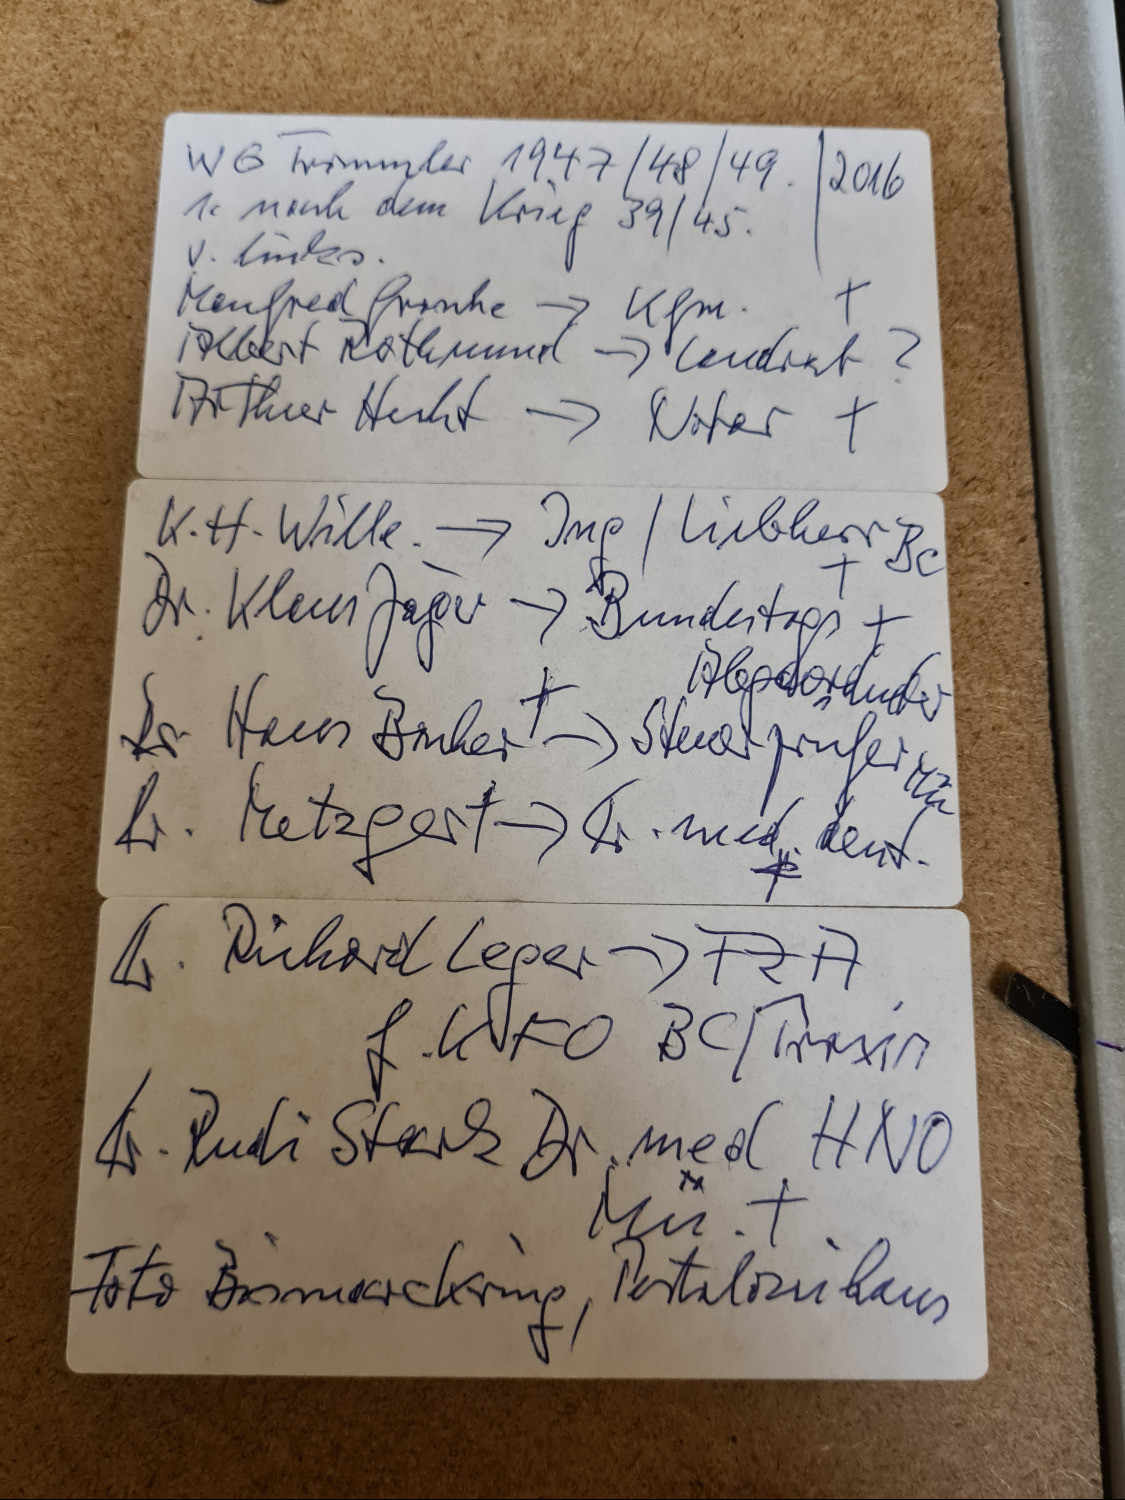 WG Trommler 1947/48/49. | 2016
1. nach dem Krieg 39/45.
v. links.
Manfred → Kfm. +
Albert Rothmund → Landrat ?
Arthur Hecht → Notar +
K.-H. Wille. → Ing / Liebherr BC
+
Dr. Klaus Jäger → Bundestags +
Abgeordneter
Dr. Hans + → Steuerprüfer Mü
Dr. Metzger + → Dr. med. dent.
+
Dr. Richard Leger → FZA
f. KFO BC/Praxis
Dr. Rudi Stark Dr. med HNO
Mü. +
Foto Bismarckring, Pestalozzihaus